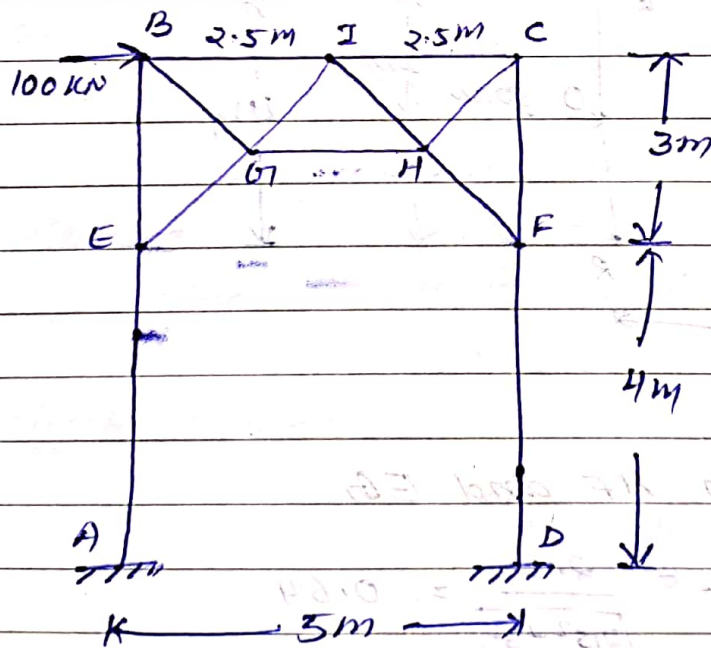 B 2.5m I 2.5m C
100 KN
3m
G ... H
E F
4m
A D
5m